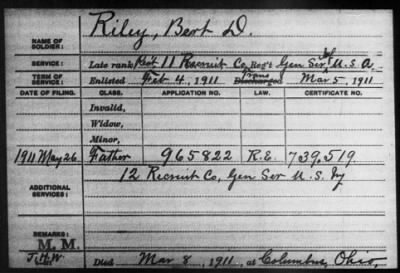 NAME OF SOLDIER: Riley, Bert D.
SERVICE: Late rank, 11 Recruit Co, Reg't Gen Ser Inf U.S.A.
TERM OF SERVICE: Enlisted Feb 4, 1911 Discharged Trans Mar 5, 1911
DATE OF FILING. CLASS. APPLICATION NO. LAW. CERTIFICATE NO.
Invalid,
Widow,
Minor,
1911 May 26 Father 965822 R.E. 739,519
ADDITIONAL SERVICES: 12 Recruit Co, Gen Ser U.S.
REMARKS:
M. M.
Died Mar 8, 1911, at Columbus, Ohio